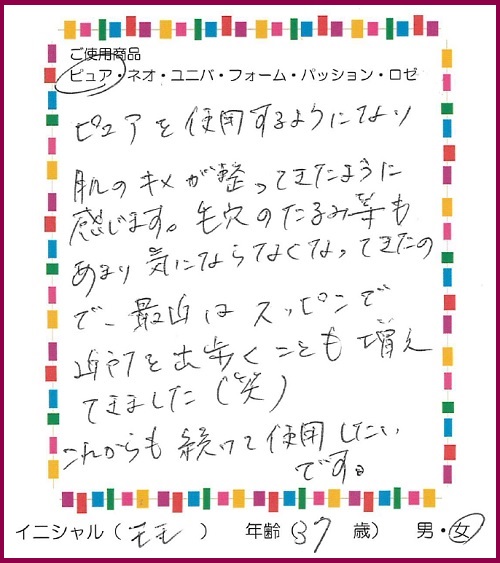 ご使用商品
ピュア・ネオ・ユニバ・フォーム・パッション・ロゼ
ピュアを使用するようになり
肌のキメが整ってきたように
感じます。毛穴のたるみ等も
あまり気にならなくなってきたの
で、最近はスッピンで
近所を出歩くことも増え
てきました(笑)
これからも続けて使用したい
です。
イニシャル( モモ ) 年齢(37歳) 男・女